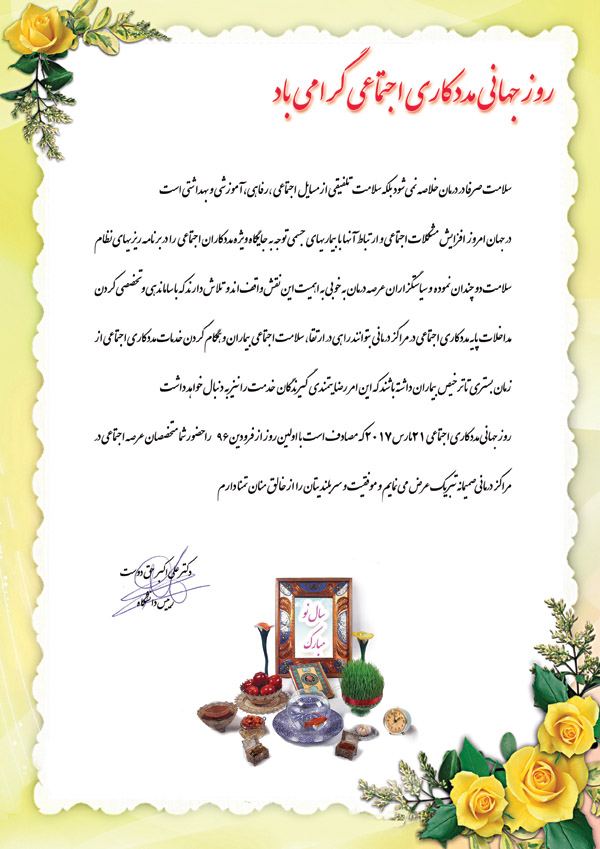 روز جهانی مددکاری اجتماعی گرامی باد
سلامت صرفا در درمان خلاصه نمی شود بلکه سلامت تلفیقی از مسایل اجتماعی ،رفاهی، آموزشی و بهداشتی است
در جهان امروز افزایش مشکلات اجتماعی و ارتباط آنها با بیماریهای جسمی توجه به جایگاه ویژه مددکاران اجتماعی را در برنامه ریزیهای نظام
سلامت دو چندان نموده و سیاستگزاران عرصه درمان به خوبی به اهمیت این نقش واقف اند و تلاش دارند که با ساماندهی و تخصصی کردن
مداخلات پایه مددکاری اجتماعی در مراکز درمانی بتوانند راهی در ارتقاء سلامت اجتماعی بیماران و همگام کردن خدمات مددکاری اجتماعی از
زمان بستری تا ترخیص بیماران داشته باشند که این امر رضایتمندی گیرندگان خدمت را نیز به دنبال خواهد داشت
روز جهانی مددکاری اجتماعی ۲۱ مارس ۲۰۱۷ که مصادف است با اولین روز از فرودین ۹۶ را حضور شما متخصصان عرصه اجتماعی در
مراکز درمانی صمیمانه تبریک عرض می نمایم و موفقیت و سربلندیتان را از خالق منان تمنا دارم
دکتر علی اکبر حق دوست
رییس دانشگاه
سال نو
مبارک